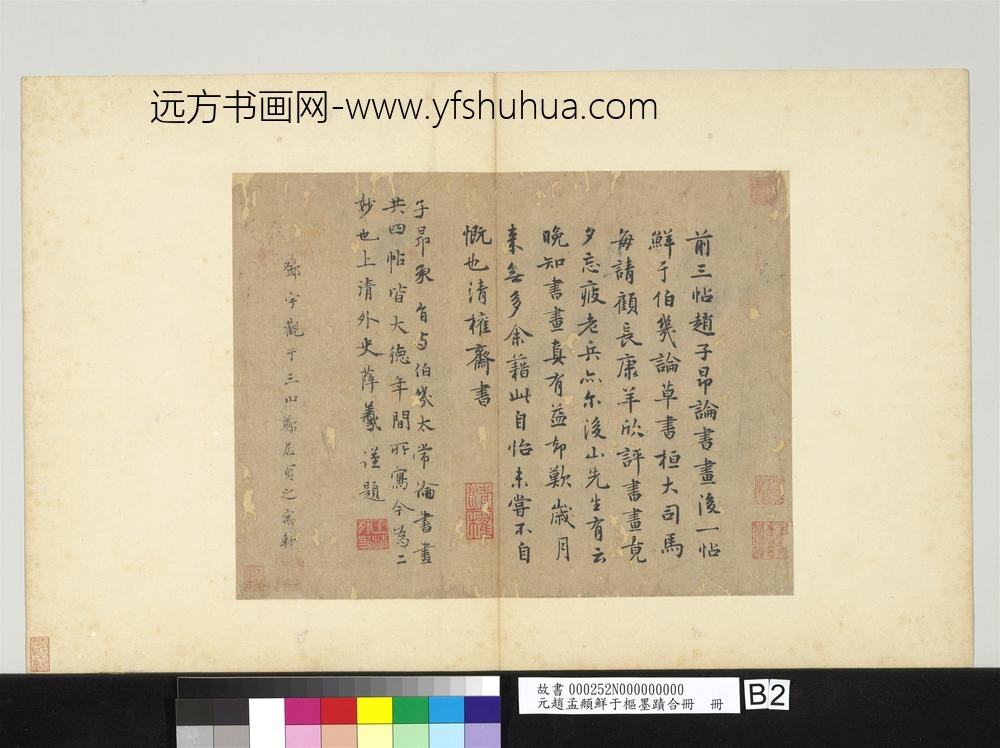 远方书画网-www.yfshuhua.com
前三帖趙子昂論書畫後一帖
鮮于伯幾論草書桓大司馬
每請顧長康羊欣評書畫竟
夕忘疲老兵亦尔後山先生有云
晚知書畫真有益却歎歲月
来無多余藉此自怡未嘗不自
慨也清權齋書
子昂承旨与伯幾太常論書畫
共四帖皆大德年間所寫今為二
妙也上清外史薛羲謹題
鄧宇觀于三山鄭居貞之寓軒
故書 000252N000000000
元趙孟頫鮮于樞墨蹟合冊 冊
B2